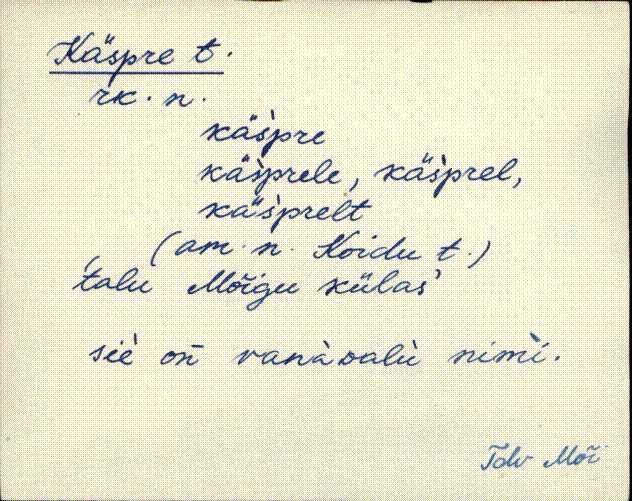 Käspre t.
rk. n.
käs̀pre
käs̀prele, käs̀prel,
käs̀prelt
(am. n. Koidu t.)
'talu Mõigu külas'
siè on̄ vanàᴅalù nimì.
Tdv Mõi